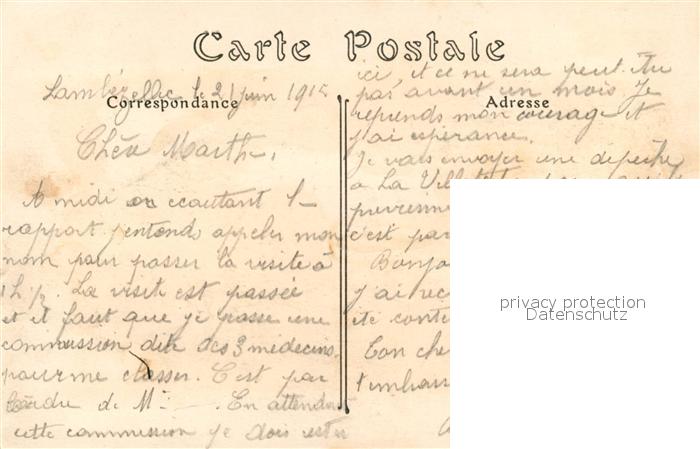 Carte Postale
Correspondance
Adresse
Lambézellec le 21 juin 1915
Chère Marthe,
A midi en ecoutant l-
rapport j'entends appeler mon
nom pour passer la visite à
1h ½. La visite est passée
et il faut que je passe une
commission dite des 3 médecins
pour me classer. C'est par
de M-. En attendant
cette commission je dois rester
ici, et ce ne sera peut-être
pas avant un mois. Je
reprends mon courage et
j'ai espérance.
Je vais envoyer une dépêche
à La
c'est par
Bonjo
j'ai rec
été conte
Ton che
privacy protection
Datenschutz